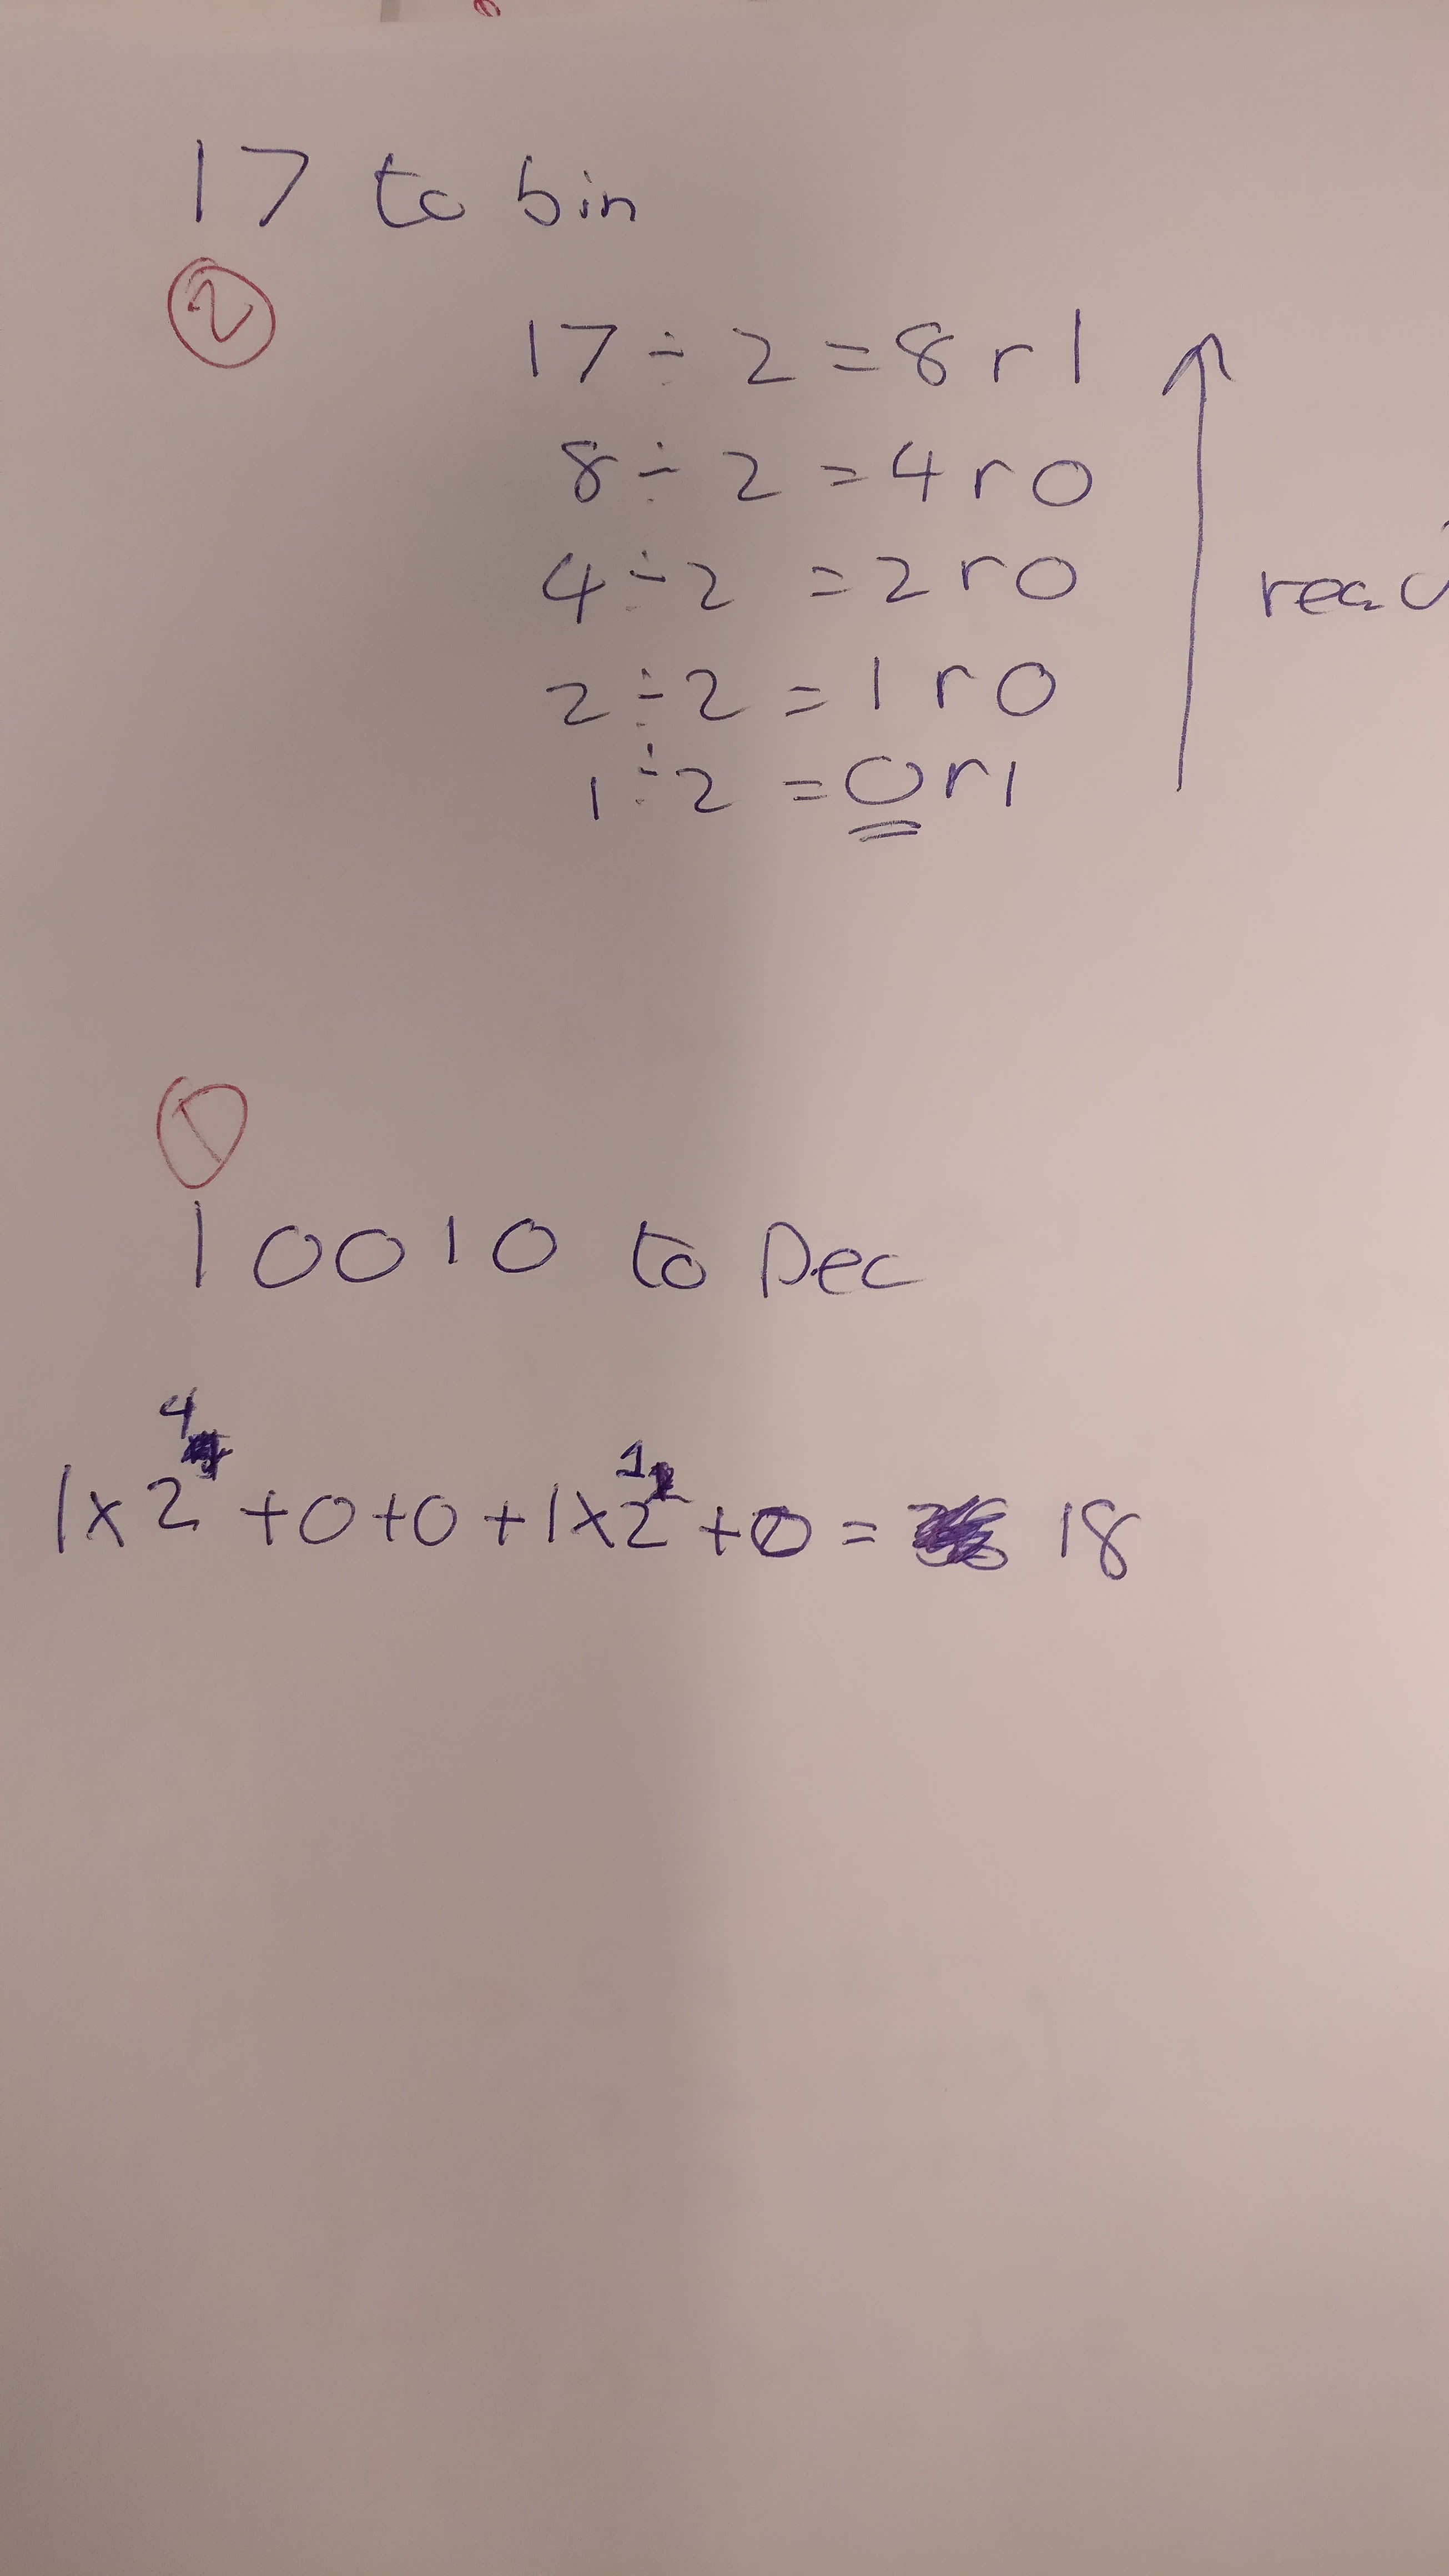 17 to bin
2
17 ÷ 2 = 8 r 1
8 ÷ 2 = 4 r 0
4 ÷ 2 = 2 r 0
read
2 ÷ 2 = 1 r 0
1 ÷ 2 = 0 r 1
1
10010 to Dec
1 x 2⁴ + 0 + 0 + 1 x 2¹ + 0 = 18